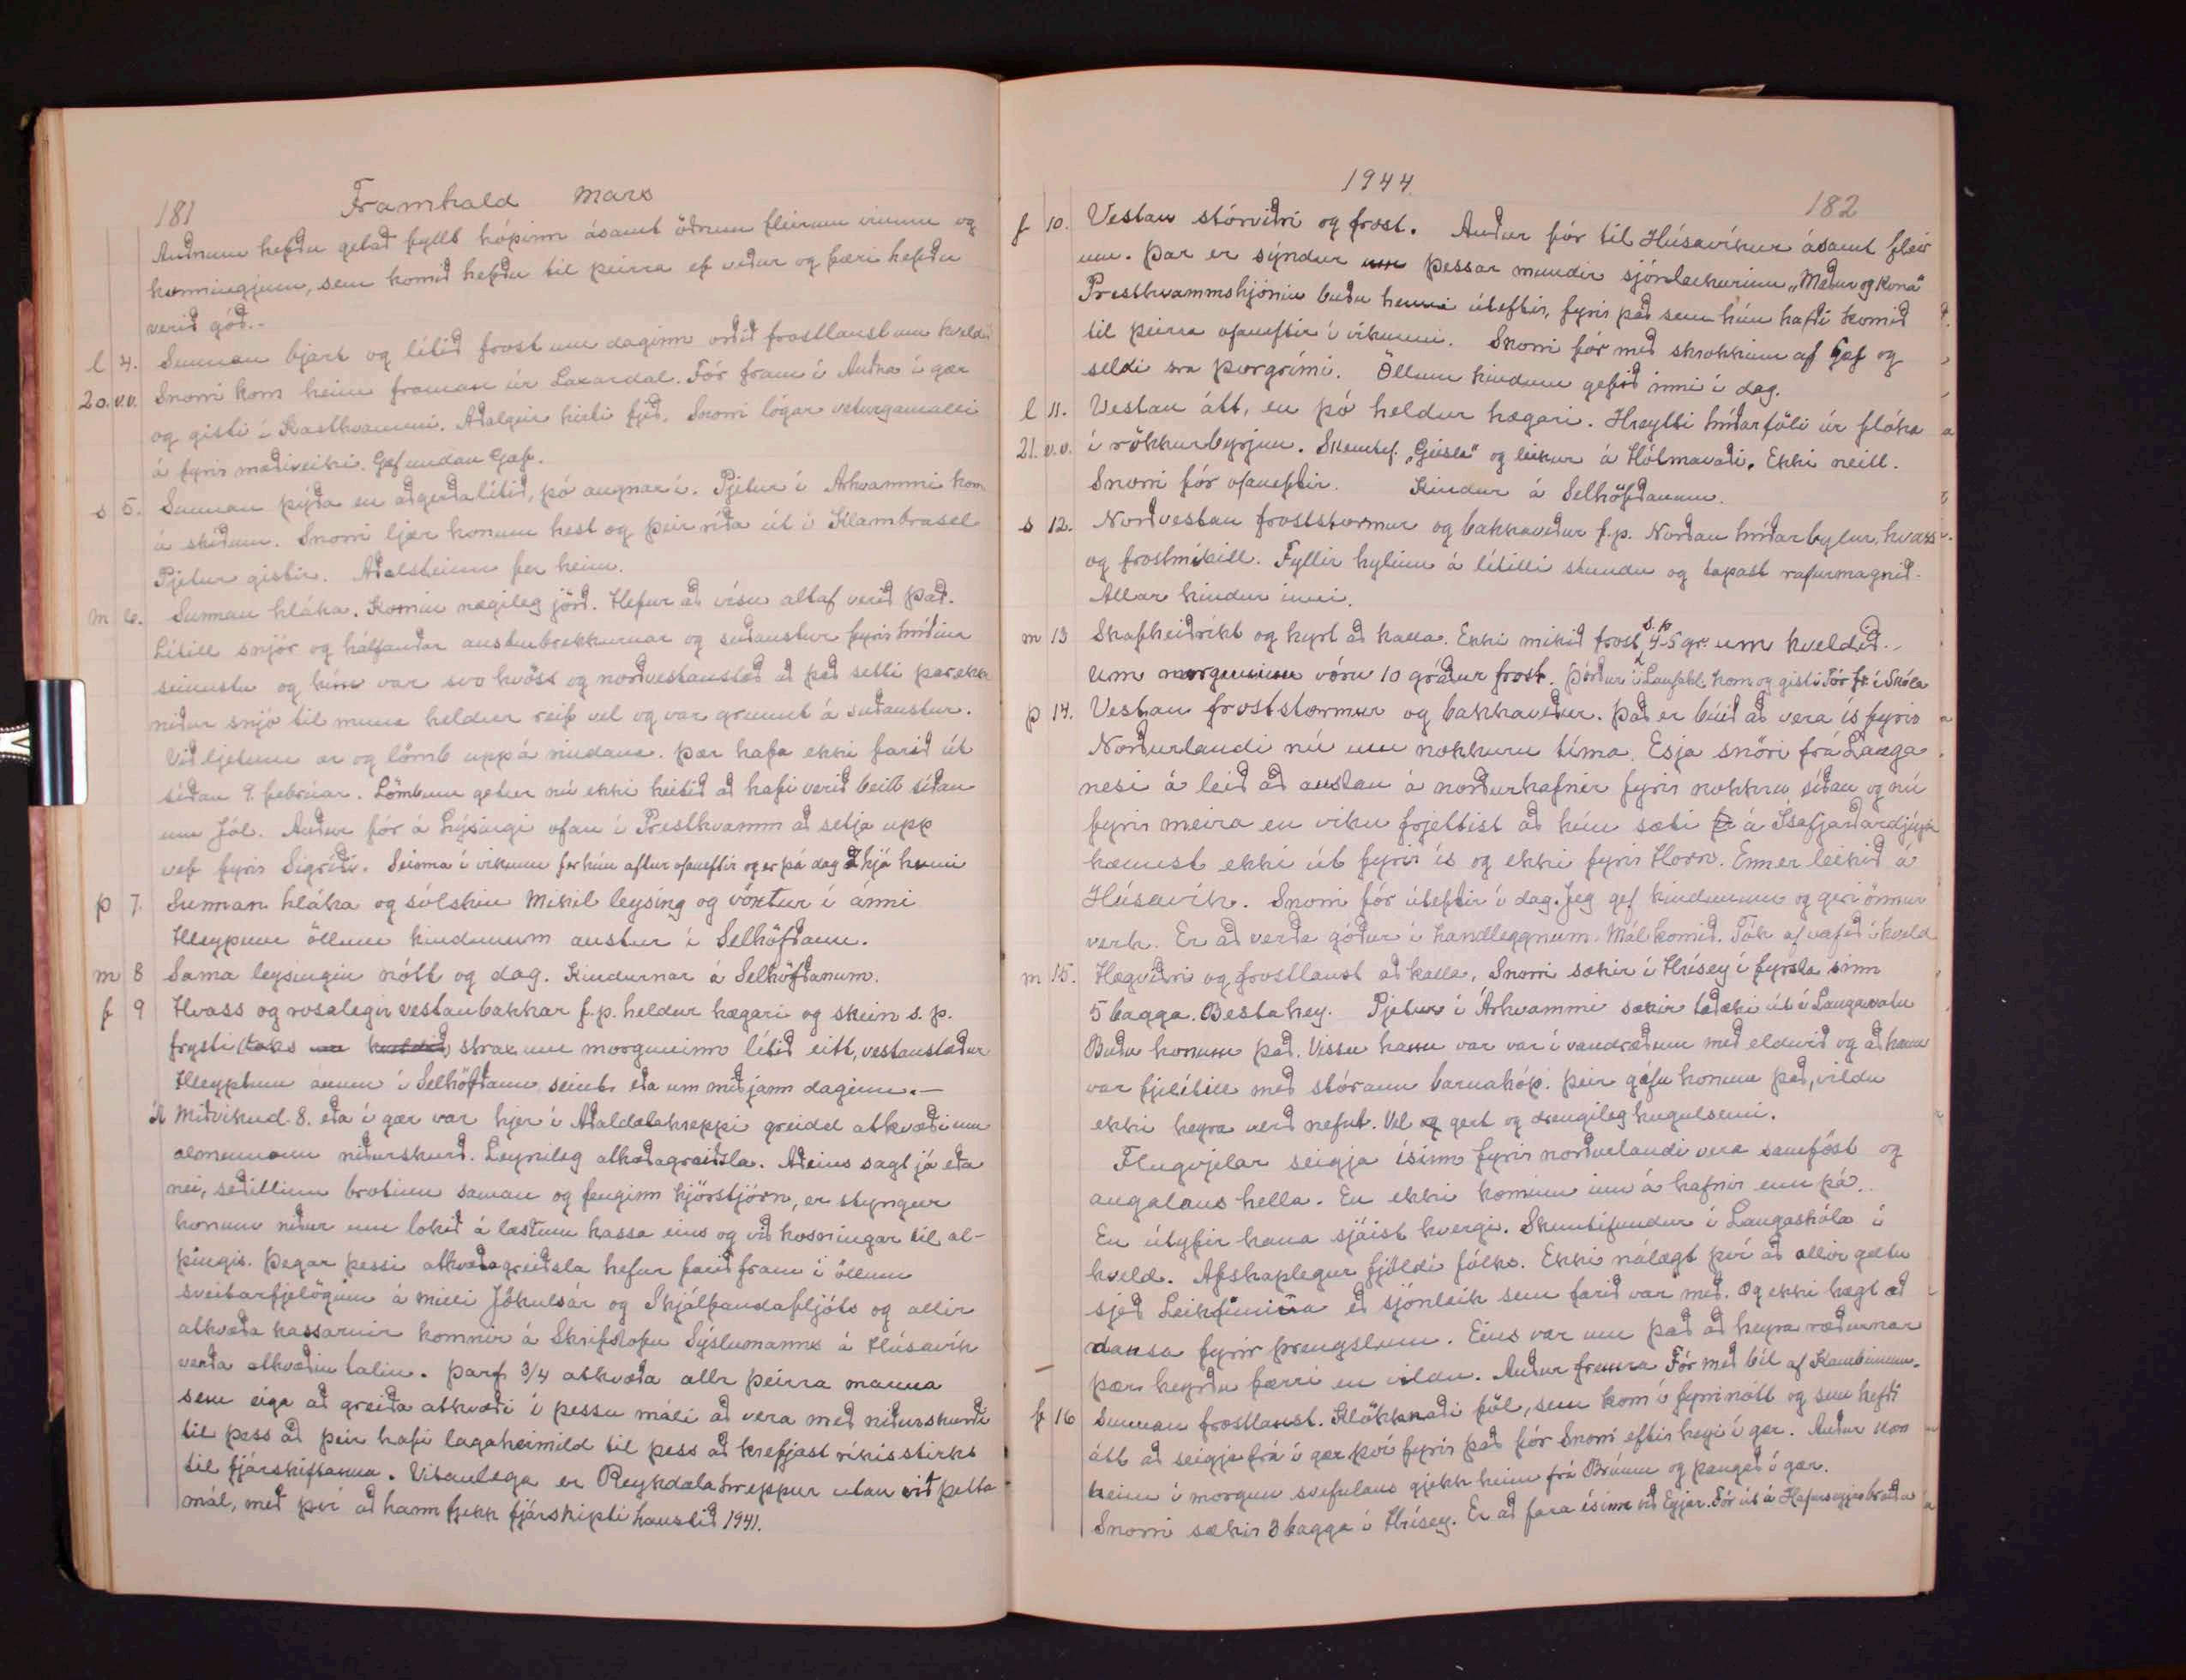 181 Framhald Mars
Auðnum hefðu getað fyllt hópinn ásamt öðrum fleirum vinum og
kunningjum, sem komið hefðu til þeirra ef veður og færi hefðu
verið góð.-
l 4. Sunnan bjart og lítið frost um daginn orðið frostlaust um kveldið
20.v.v. Snorri kom heim framan úr Laxardal. Fór fram í Auðna í gær
og gisti í Kasthvammi. Aðalgeir hirti fjeð. Snorri lógar veturgamalli
á fyrir mæðiveiki. Gæf undan Gæf.
s 5. Sunnan þýða en aðgerðalítið, þó augnar í. Pjetur í Árhvammi kom
á skíðum. Snorri ljær honum hest og þeir ríða út í Klambrasel
Pjetur gistir. Aðalsteinn fer heim.
m 6. Sunnan hláka. Komin nægileg jörð. Hefur að vísu altaf verið það.
Lítill snjór og hálfauðar austurbrekkurnar og suðaustur fyrir hríðina
seinustu og hún var svo hvöss og norðvestanstæð að það setti þar ekki
niður snjó til muna heldur reif vel og var grunnt á suðaustur.
Við ljetum ær og lömb uppá rindana. Þær hafa ekki farið út
síðan 9. febrúar. Lömbum getur nú ekki heitið að hafi verið beitt síðan
um Jól. Auður fór á Lýsingi ofan í Presthvamm að setja upp
vef fyrir Sigríði. Seinna í vikunni fer hún aftur ofaneftir og er þá dag hjá henni
þ 7. Sunnan hláka og sólskin Mikil leysing og vöxtur í ánni
Hleypum öllum kindunum austur í Selhöfðann.
m 8 Sama leysingin nótt og dag. Kindurnar á Selhöfðanum.
f 9 Hvass og rosalegir vestanbakkar f.p. heldur hægari og skein s.p.
frysti strax um morguninn lítið eitt, vestanstæður
Hleyptum ánum í Selhöfðann seint eða um miðjann daginn.-
Miðvikud. 8. eða í gær var hjer í Aðaldælahreppi greidd atkvæði um
almennann niðurskurð. Leynileg atkvæðagreiðsla. Aðeins sagt já eða
nei, seðillinn brotinn saman og fenginn kjörstjórn, er styngur
honum niður um lokið á læstum kassa eins og við kosningar til al-
þingis. Þegar þessi atkvæðagreiðsla hefur farið fram í öllum
sveitarfjelögum á milli Jökulsár og Skjálfandafljóts og allir
atkvæða kassarnir komnir á Skrifstofu Sýslumanns á Húsavík
verða atkvæðin talin. Þarf 3/4 atkvæða allr þeirra manna
sem eiga að greiða atkvæði í þessu máli að vera með niðurskurði
til þess að þeir hafi lagaheimild til þess að krefjast ríkisstirks
til fjárskiftanna. Vitanlega er Reykdælahreppur utan við þetta
mál, með því að hann fjekk fjárskipti haustið 1941.
1944. 182
f 10. Vestan stórviðri og frost. Auður fór til Húsavíkur ásamt fleir
um. Þar er sýndur þessar mundir sjónleikurinn „Maður og Kona"
Presthvammshjónin buðu henni úteftir, fyrir það sem hún hafði komið
til þeirra ofaneftir í vikunni. Snorri fór með skrokkinn af Gæf og
seldi sra Þorgrími. Öllum kindum gefið inni í dag.
l 11. Vestan átt, en þó heldur hægari. Hreytti hríðarföli úr flóka
21.v.v. í rökkurbyrjun. Skemtif. „Geisla" og leikur á Hólmavaði. Ekki neitt.
Snorri fór ofaneftir. Kindur á Selhöfðanum.
s 12. Norðvestan froststormur og bakkaveður f.p. Norðan hríðarbylur, hvass
og frostmikill. Fyllir hylinn á lítilli stundu og tapast rafurmagnið.
Allar kindur inni.
m 13 Skafheiðríkt og kyrt að kalla. Ekki mikið frost, s.p. 4-5 gr. um kveldið.-
Um morguninn vóru 10 gráður frost. Þórður í Laufahl. kom og gisti Fór í Skóla
þ 14. Vestan froststormur og bakkaveður. Það er búið að vera ís fyrir
Norðurlandi nú um nokkurn tíma. Esja snöri frá Langa
nesi á leið að austan á norðurhafnir fyrir nokkru síðan og nú
fyrir meira en viku frjettist að hún sæti á Ísafjarðardjúpi
kæmist ekki út fyrir ís og ekki fyrir Horn. Enn er leikið á
Húsavík. Snorri fór úteftir í dag. Jeg gef kindunum og geri önnur
verk. Er að verða góður í handleggnum. Mál komið. Tók af vafið í kveld
m 15. Hægviðri og frostlaust að kalla. Snorri sækir í Hrísey í fyrsta sinn
5 bagga. Besta hey. Pjetur í Árhvammi sækir í Laugavatn
Buðu honum það. Vissu hann var var í vandræðum með eldivið og að hann
var fjelítill með stórann barnahóp. Þeir gáfu honum það, vildu
ekki heyra verð nefnt. Vel og gert og drengileg hugulsemi.
Flugvjelar seigja ísinn fyrir norðurlandi vera samföst og
augalaus hella. En ekki kominn inn á hafnir enn þá..
En útyfir hana sjáist hvergi. Skemtifundur í Laugaskóla í
kveld. Afskaplegur fjöldi fólks. Ekki nálægt því að allir gætu
sjeð Leikfimina eð sjónleik sem farið var með. Og ekki hægt að
dansa fyrir þrengslum. Eins var um það að heyra ræðurnar
þær heyrðu færri en vildu. Auður fremra Fór með bíl af Kambinum.
f 16 Sunnan frostlaust. Klökknaði föl, sem kom í fyrrinótt og sem hefti
átt að seigja frá í gær því fyrir það fór Snorri eftir heyi í gær. Auður kom
heim í morgun svefnlaus gjekk heim frá Brúum og þangað í gær.
Snorri sækir 3 bagga í Hrísey. Er að fara ísinn við Eyjar. Fór út á